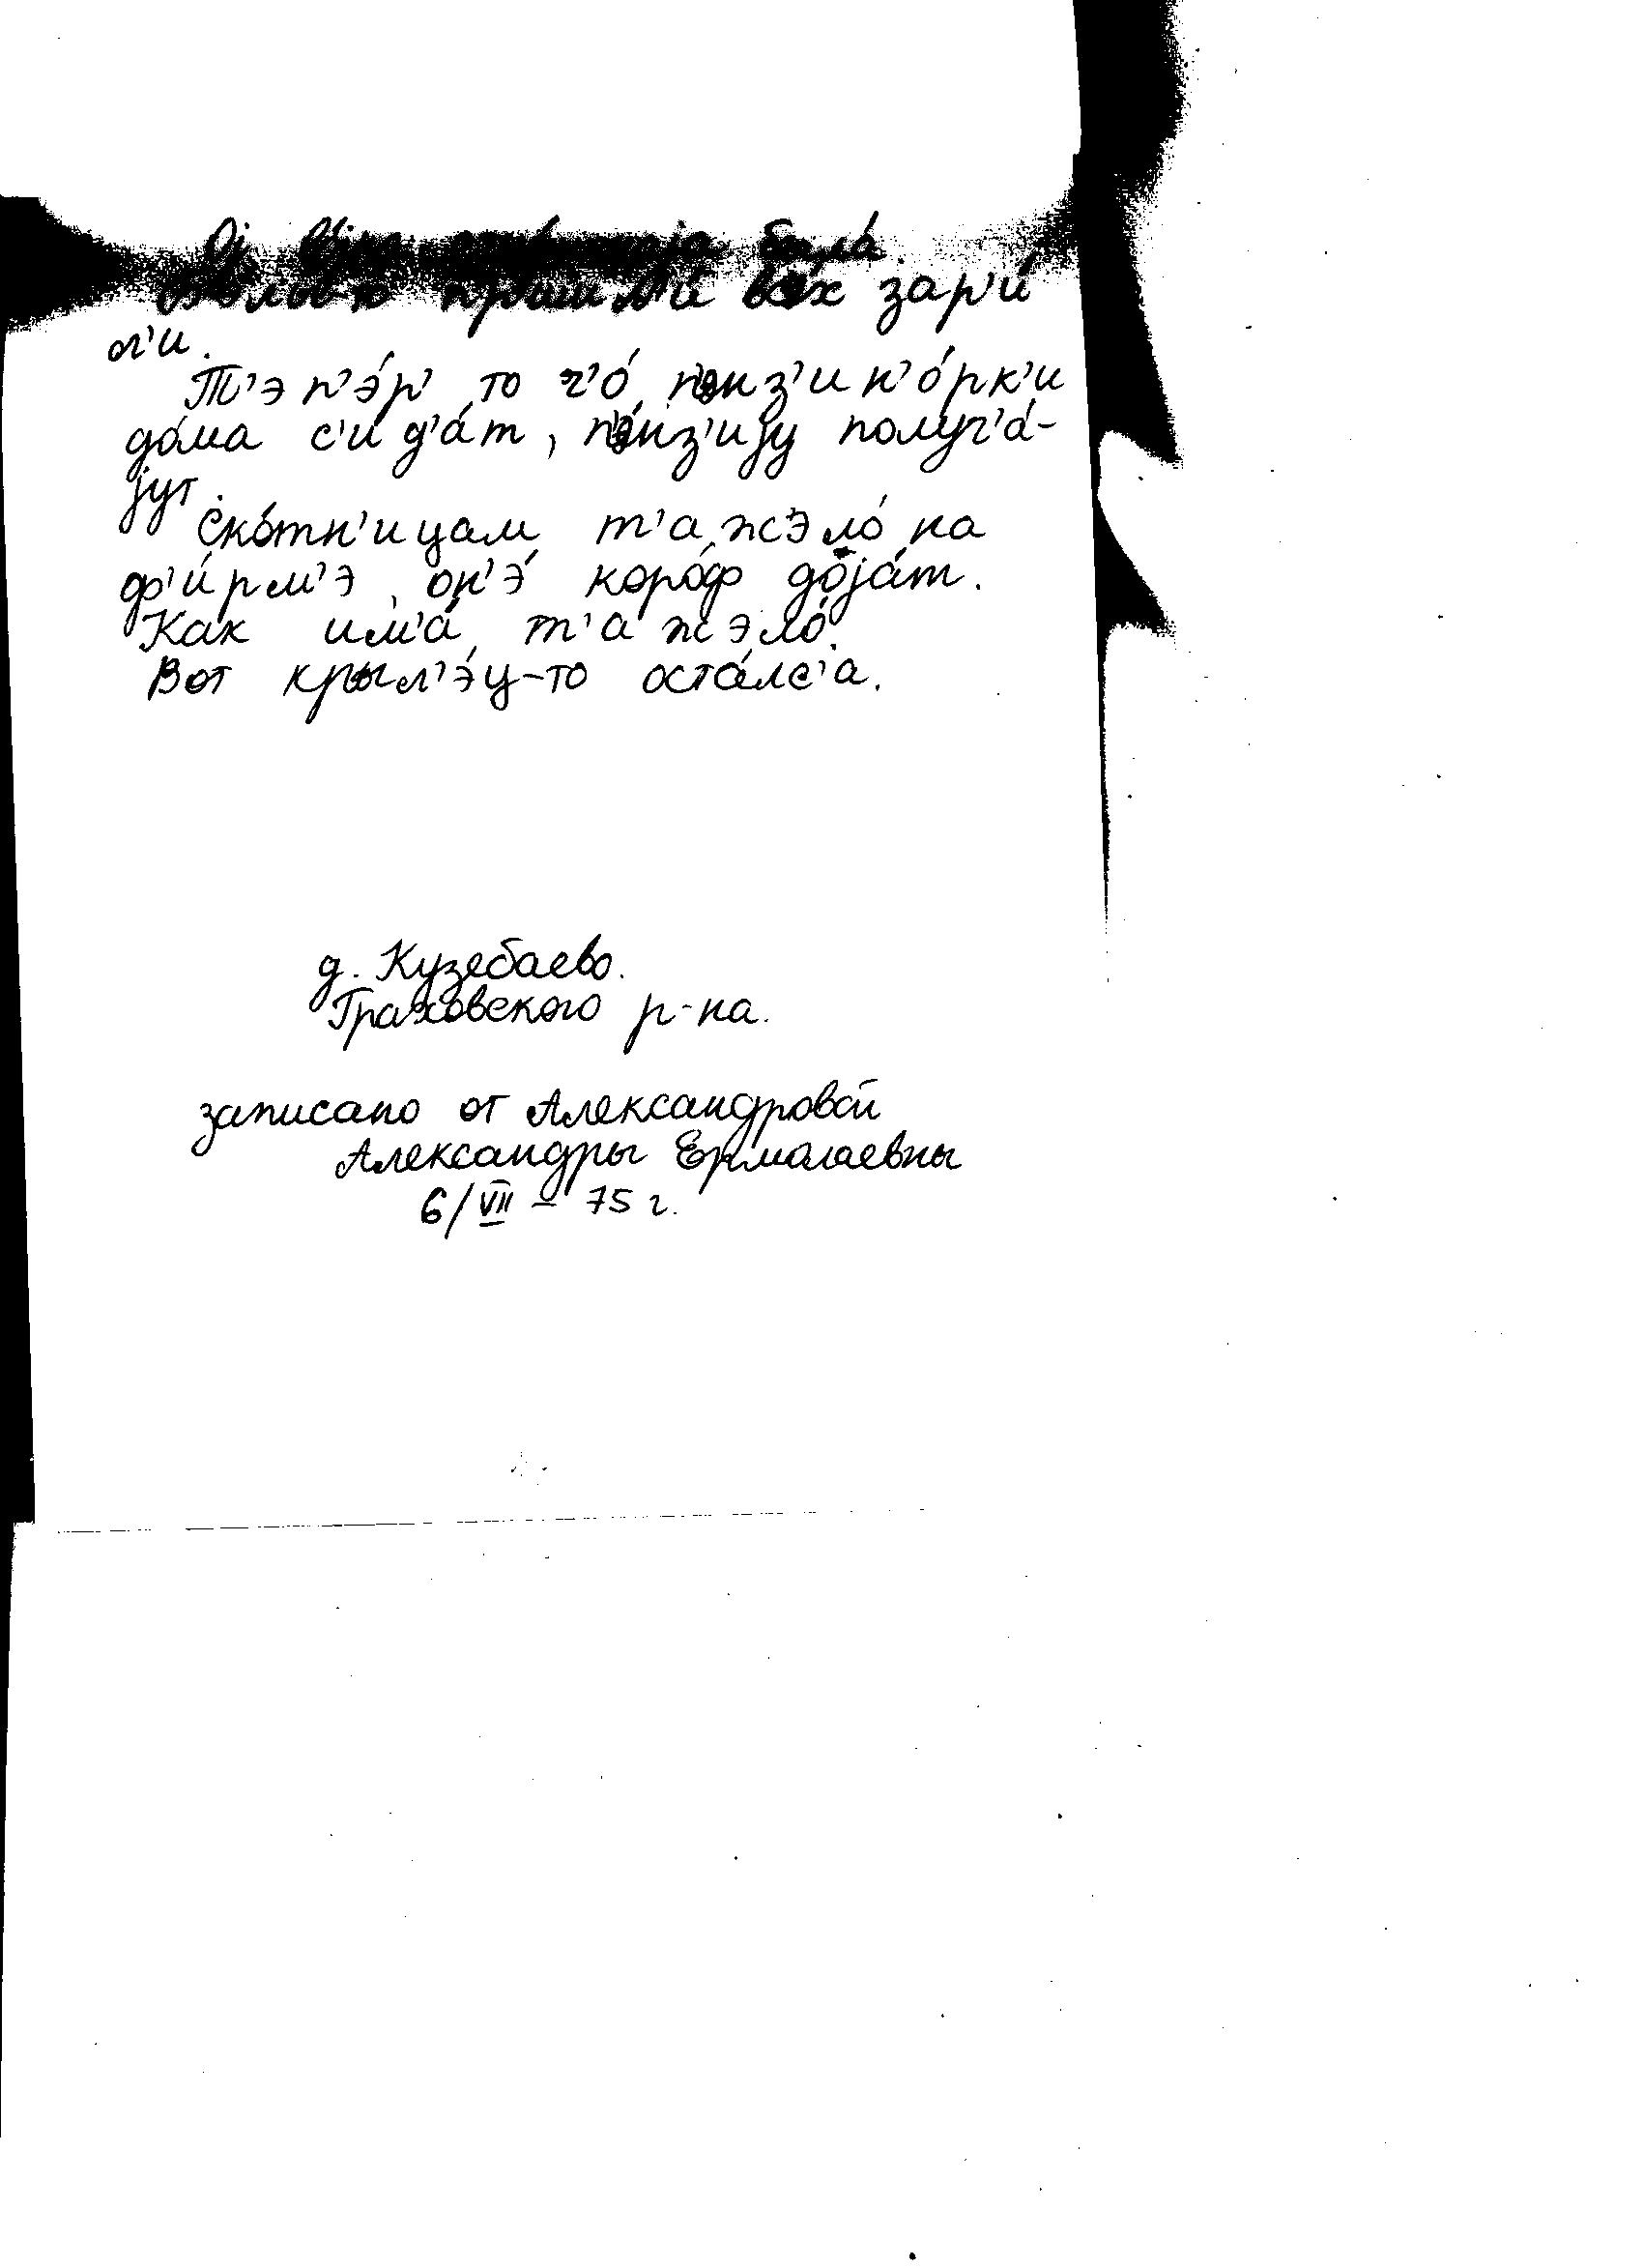 была́.
пришл'и́ вс'э́х зар'и́
л'и.
Т'эп'э́р' то ч'о́ п'энз'ин'о́рк'и
до́ма с'ид'а́т, п'э́нз'иjу получ'а́-
jут.
Ско́тн'ицам т'ажэло́ на
ф'и́рм'э, он'э́ коро́ф доjа́т.
Как им'а́, т'ажэло́.
Вот крыл'э́ц-то оста́лс'а.
д. Кузебаево.
Граховского р-на.
записано от Александровой
Александры Ермолаевны
6/VII – 75 г.